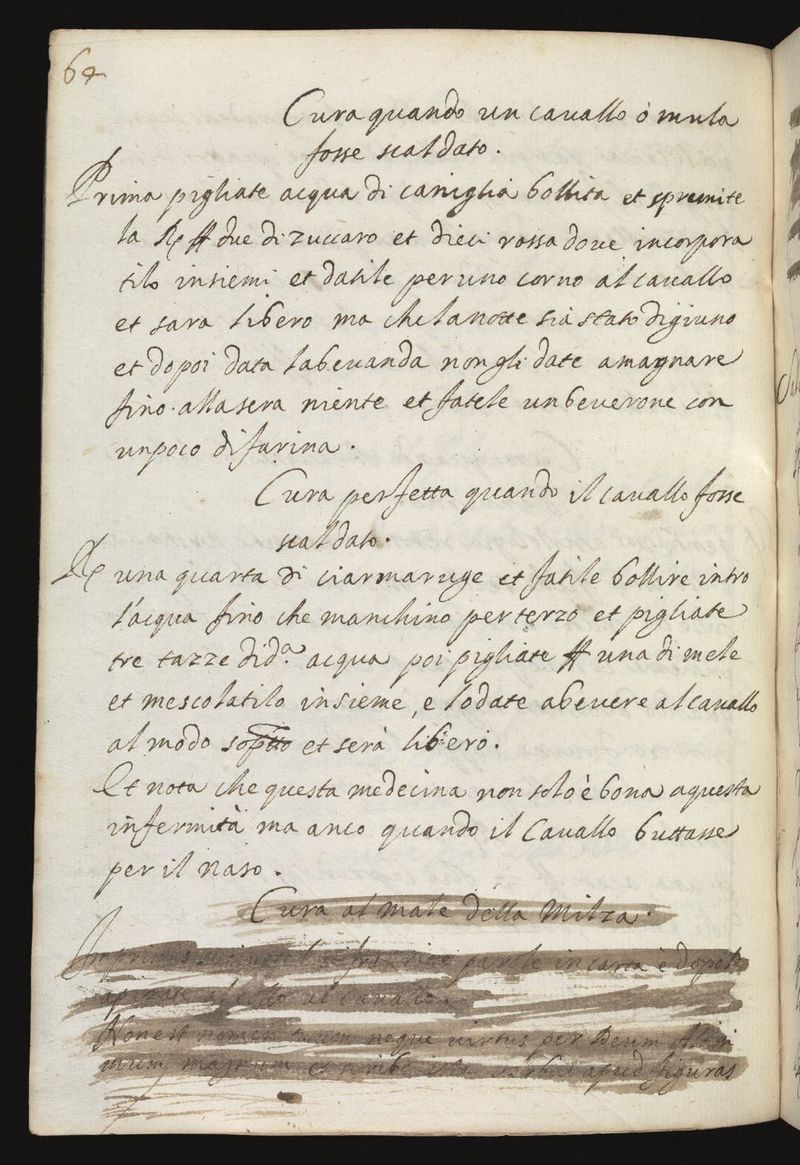 64
Cura quando un cavallo ò mula
fosse scaldato.
Prima pigliate acqua di caniglia bollita et spremite
la ℞ ℔ due di zuccaro et dieci rossa dove incorpora
tilo insiemi et datile per uno corno al cavallo
et sara libero ma che la notte sia stato digiuno
et dopoi data la bevanda non gli date a magnare
fino alla sera niente et fatele un beverone con
un poco di farina.
Cura perfetta quando il cavallo fosse
scaldato.
℞ una quarta di ciarmaruge et fatile bollire intro
l'acqua fino che manchino per terzo et pigliate
tre tazze di d.ª acqua poi pigliate ℔ una di mele
et mescolatilo insieme, e lo date a bevere al cavallo
al modo sop.tto et serà libero.
Et nota che questa medecina non solo è bona a questa
infermità ma anco quando il Cavallo buttasse
per il naso.
Cura al male della Milza.
In carta è dopo
al cavallo.
Non est nomen tuum neque virtus per Deum Altissi
mum et scribe apud figuras